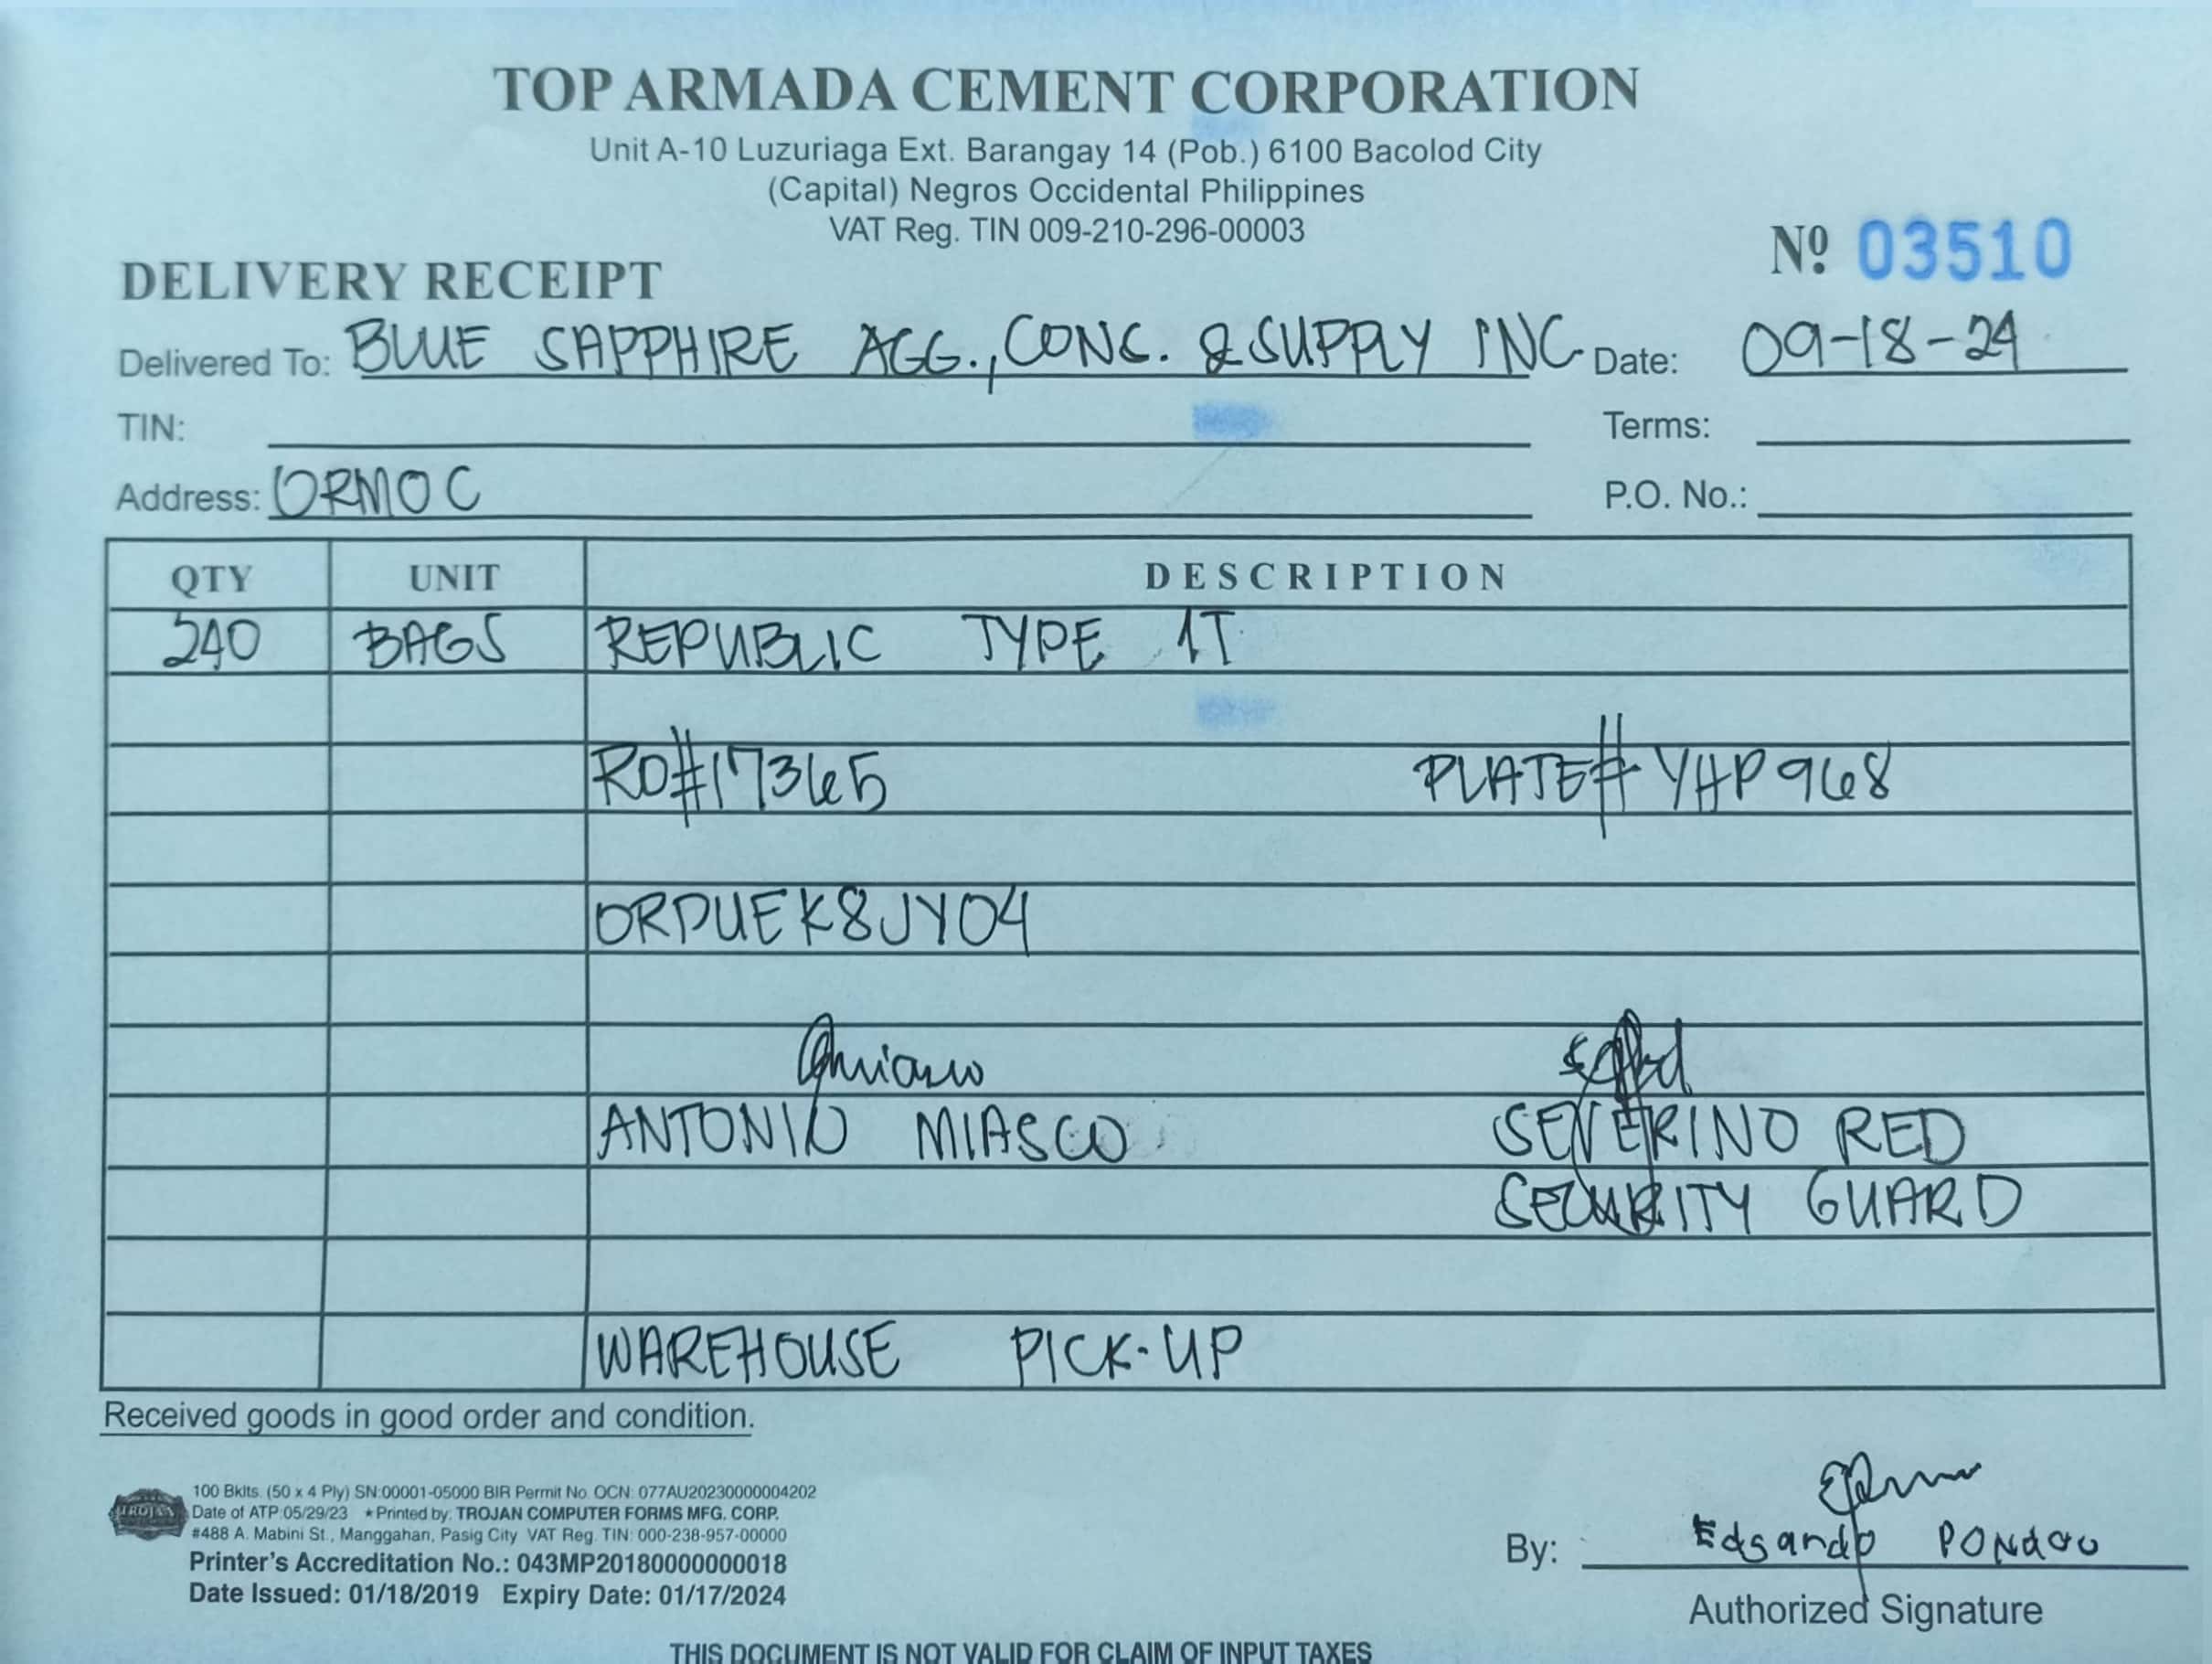 TOP ARMADA CEMENT CORPORATION
Unit A-10 Luzuriaga Ext. Barangay 14 (Pob.) 6100 Bacolod City
(Capital) Negros Occidental Philippines
VAT Reg. TIN 009-210-296-00003
Nº 03510
DELIVERY RECEIPT
Delivered To: BLUE SAPPHIRE AGG., CONC. & SUPPLY INC. Date: 09-18-24
TIN: Terms:
Address: ORMOC P.O. No.:
QTY UNIT DESCRIPTION
240 BAGS REPUBLIC TYPE 1T
RO#17365 PLATE# YHP 968
ORPUEK8JY04
ANTONIO MIASCO SEVERINO RED
SECURITY GUARD
WAREHOUSE PICK-UP
Received goods in good order and condition.
TROJAN
100 Bklts. (50 x 4 Ply) SN:00001-05000 BIR Permit No. OCN: 077AU20230000004202
Date of ATP:05/29/23 ★Printed by: TROJAN COMPUTER FORMS MFG. CORP.
#488 A. Mabini St., Manggahan, Pasig City VAT Reg. TIN: 000-238-957-00000
Printer's Accreditation No.: 043MP20180000000018
Date Issued: 01/18/2019 Expiry Date: 01/17/2024
By: Edgardo
Authorized Signature
THIS DOCUMENT IS NOT VALID FOR CLAIM OF INPUT TAXES